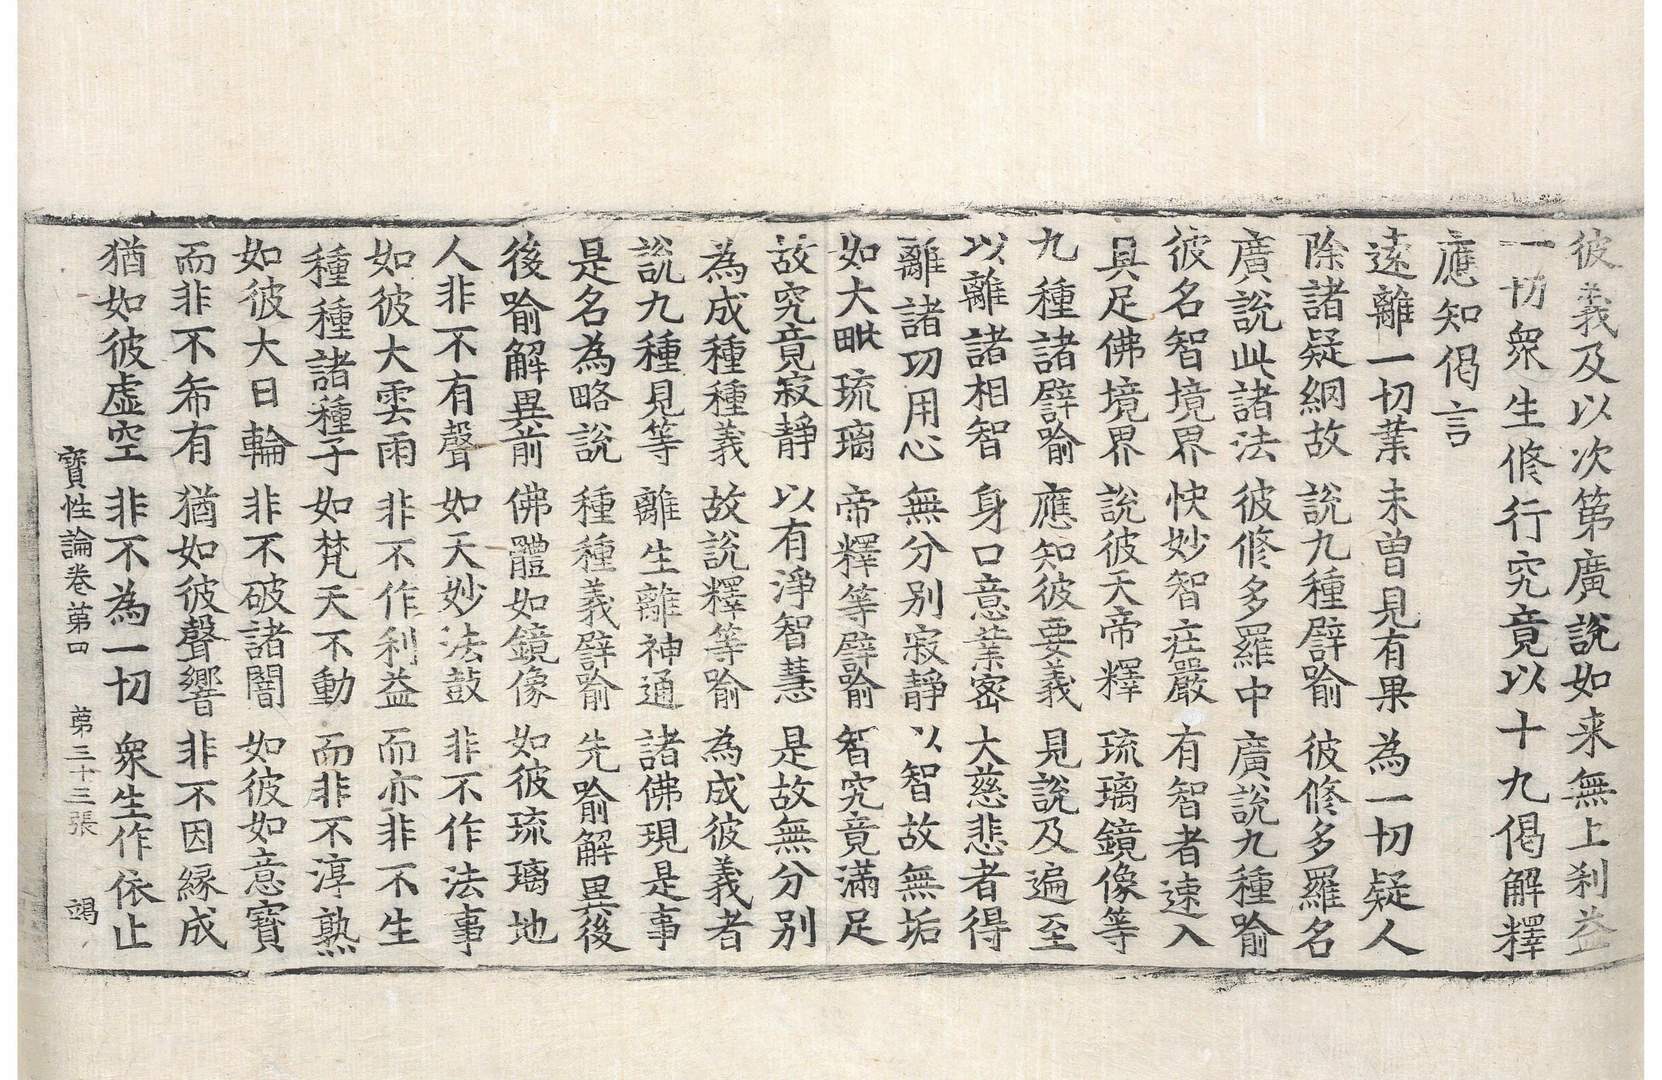 彼義及以次第廣說如来無上利益
一切衆生修行究竟以十九偈解釋
應知偈言
遠離一切業 未曽見有果 為一切疑人
除諸疑網故 說九種譬喻 彼修多羅名
廣說此諸法 彼修多羅中 廣說九種喻
彼名智境界 快妙智莊嚴 有智者速入
具足佛境界 說彼天帝釋 琉璃鏡像等
九種諸譬喻 應知彼要義 見說及遍至
以離諸相智 身口意業密 大慈悲者得
離諸功用心 無分別寂靜 以智故無垢
如大毗琉璃 帝釋等譬喻 智究竟滿足
故究竟寂靜 以有淨智慧 是故無分別
為成種種義 故說釋等喻 為成彼義者
說九種見等 離生離神通 諸佛現是事
是名為略說 種種義譬喻 先喻解異後
後喻解異前 佛體如鏡像 如彼琉璃地
人非不有聲 如天妙法鼓 非不作法事
如彼大雲雨 非不作利益 而亦非不生
種種諸種子 如梵天不動 而非不淳熟
如彼大日輪 非不破諸闇 如彼如意寶
而非不希有 猶如彼聲響 非不因緣成
猶如彼虛空 非不為一切 衆生作依止
寳性論卷苐四 苐三十三張 竭